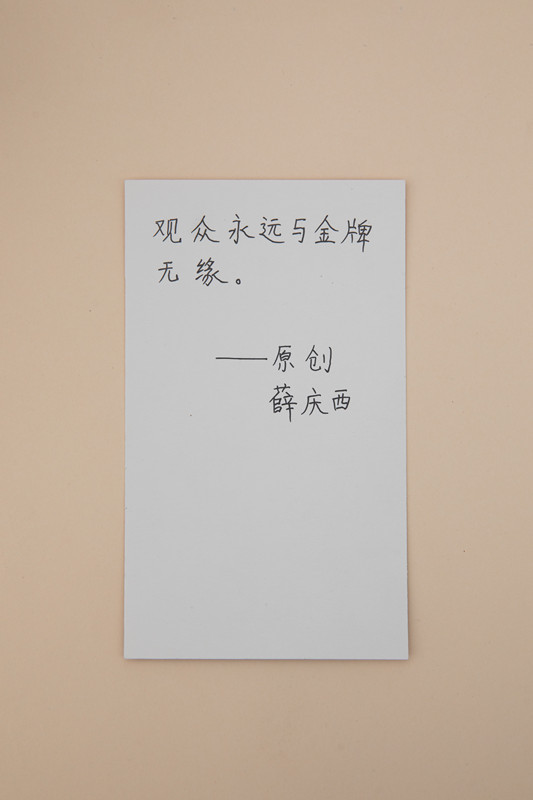 观众永远与金牌
无缘。
——原创
薛庆西